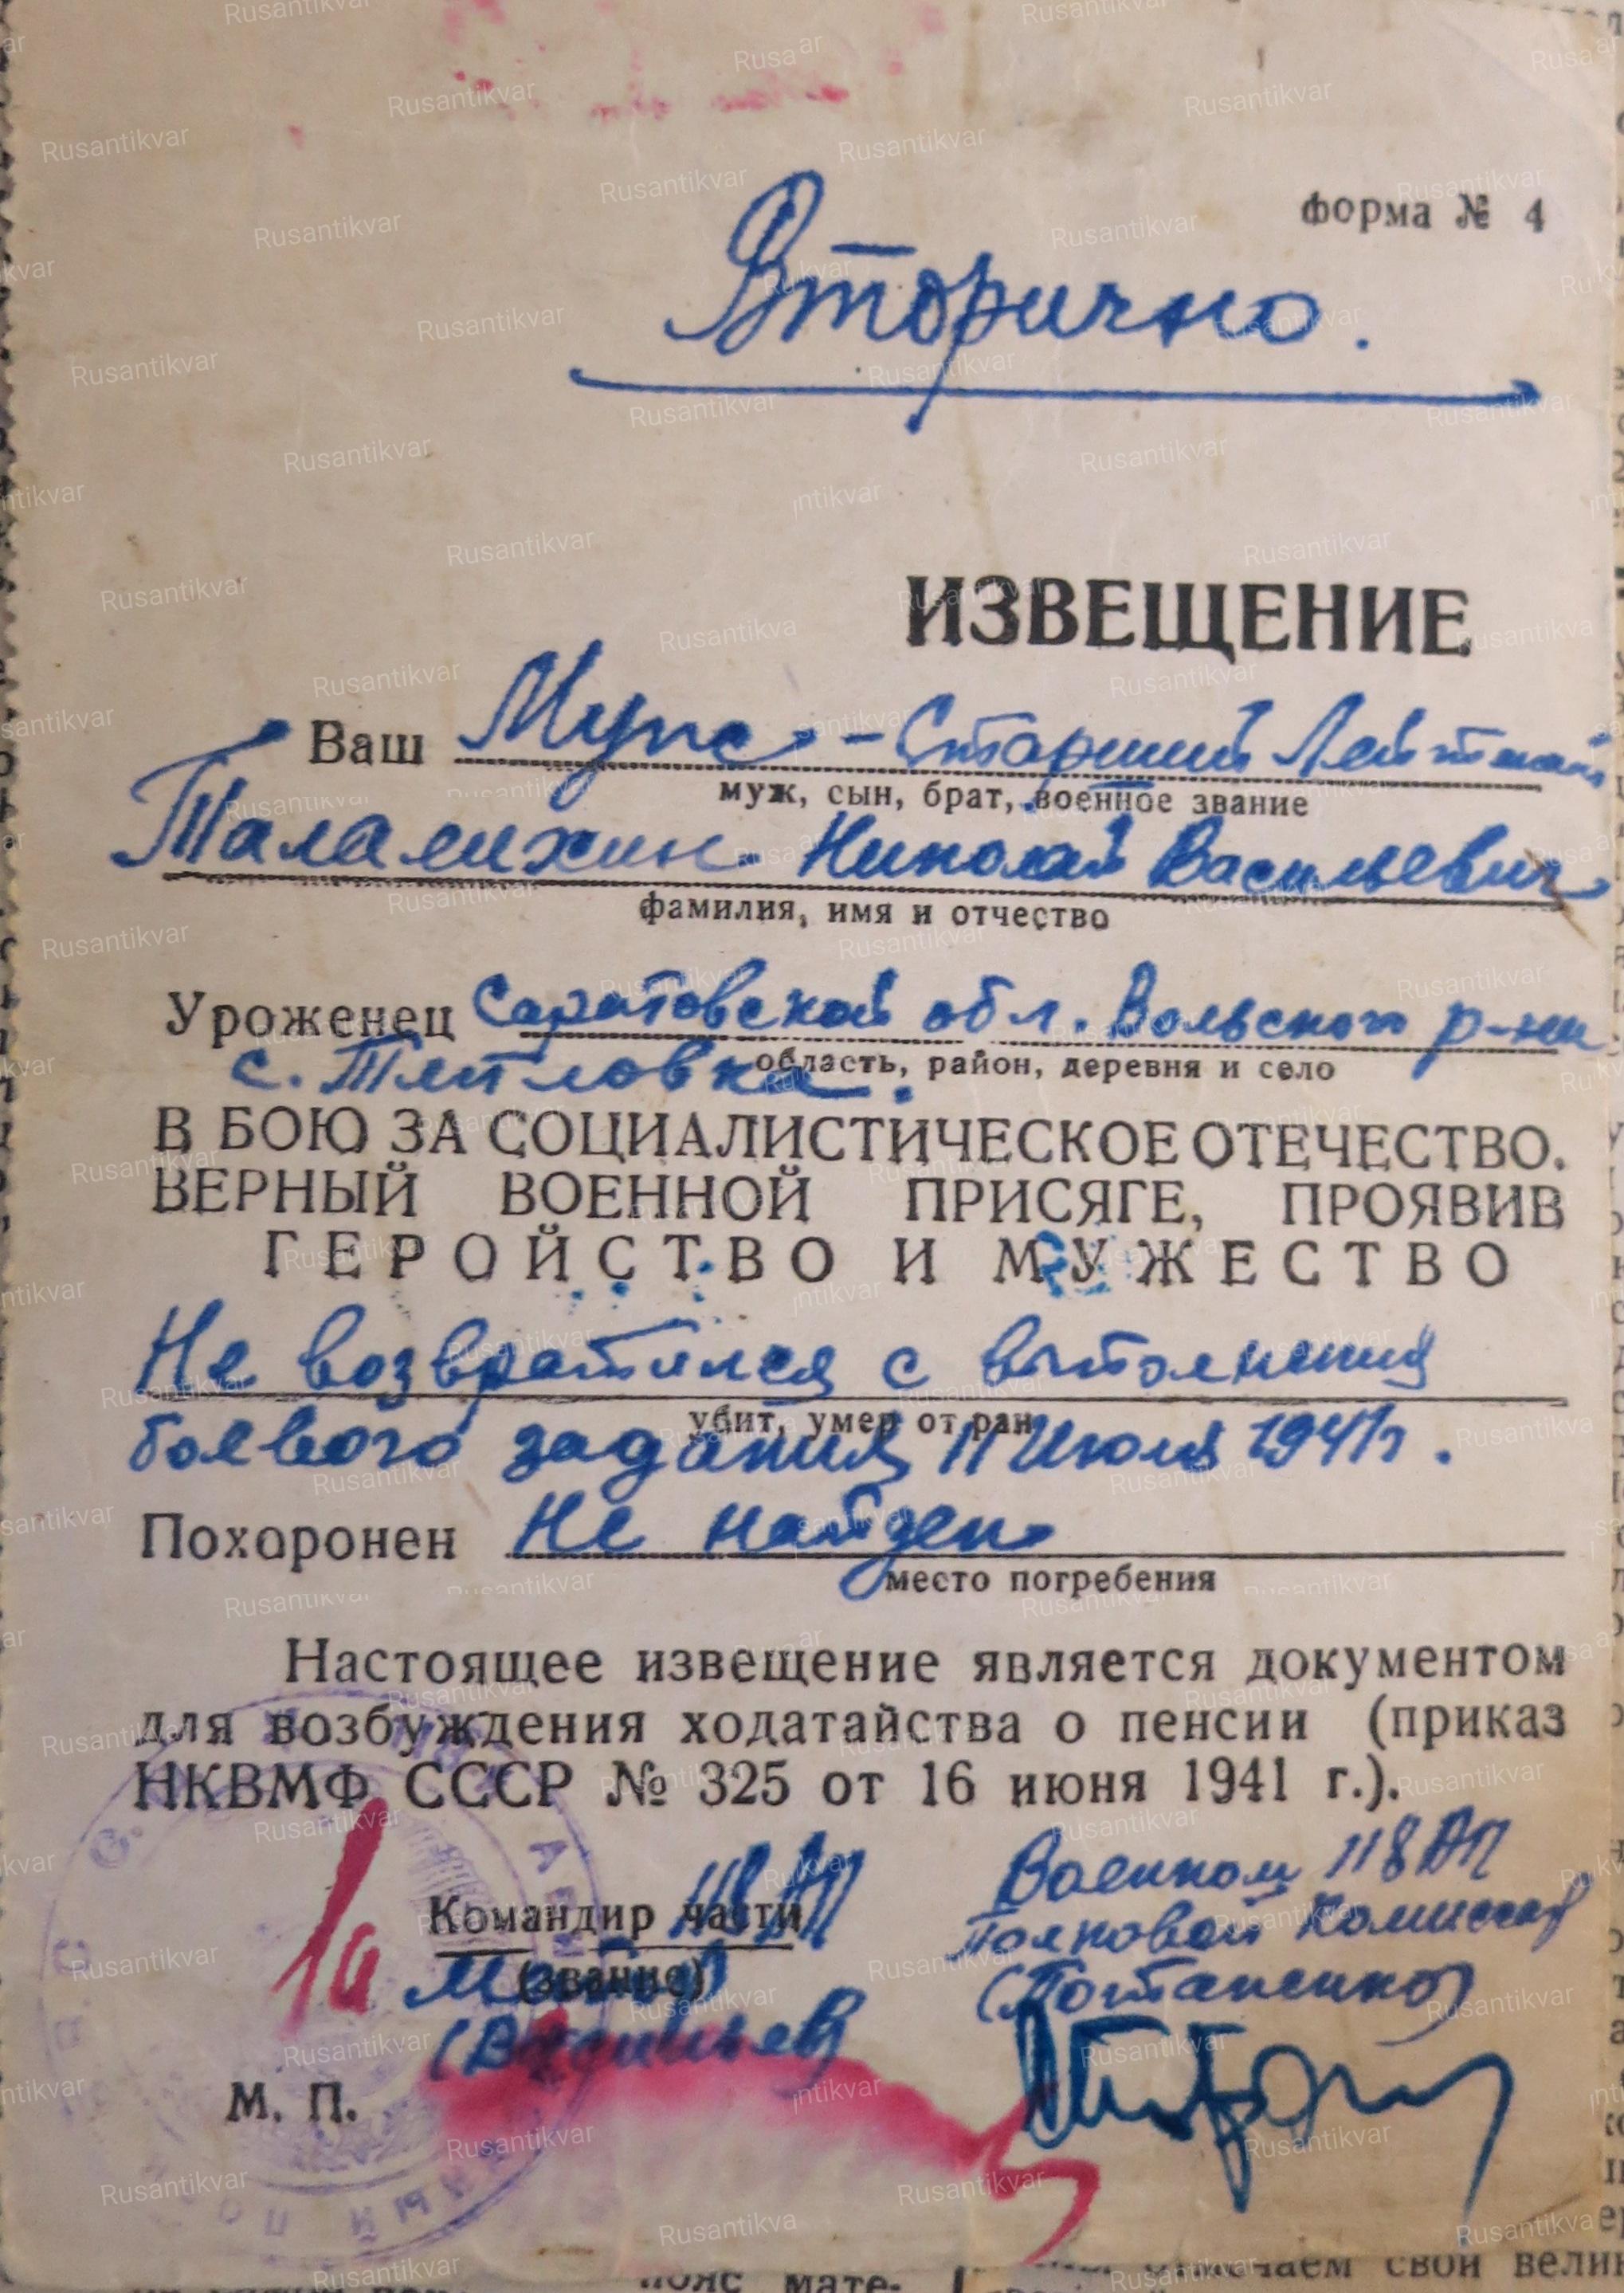 форма № 4
Вторично.
ИЗВЕЩЕНИЕ
Ваш Муж - Старший Лейтенант
муж, сын, брат, военное звание
Талалихин Николай Васильевич
фамилия, имя и отчество
Уроженец Саратовской обл. Вольского р-на
область, район, деревня и село
с. Тепловка.
В БОЮ ЗА СОЦИАЛИСТИЧЕСКОЕ ОТЕЧЕСТВО.
ВЕРНЫЙ ВОЕННОЙ ПРИСЯГЕ, ПРОЯВИВ
ГЕРОЙСТВО И МУЖЕСТВО
Не возвратился с выполнения
убит, умер от ран
боевого задания 11 Июля 1941 г.
Похоронен Не найден
место погребения
Настоящее извещение является документом
для возбуждения ходатайства о пенсии (приказ
НКВМФ СССР № 325 от 16 июня 1941 г.).
Командир части 118 АП
(звание)
Майор
(Васильев)
Военком 118 АП
Полковой Комиссар
(Потапенко)
1а
М. П.
Rusantikvar